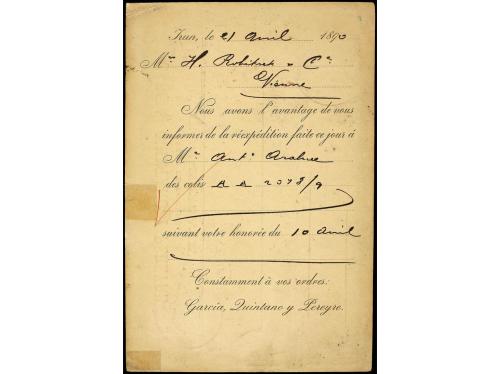 Irun, le 21 Avril 1890
Mr H. Robitsek & Ce
Vienne
Nous avons l'avantage de vous
informer de la réexpédition faite ce jour à
Mr Anto
des colis A A 2078/9
suivant votre honorée du 10 Avril
Constamment à vos ordres:
Garcia, Quintano y Pereyro.